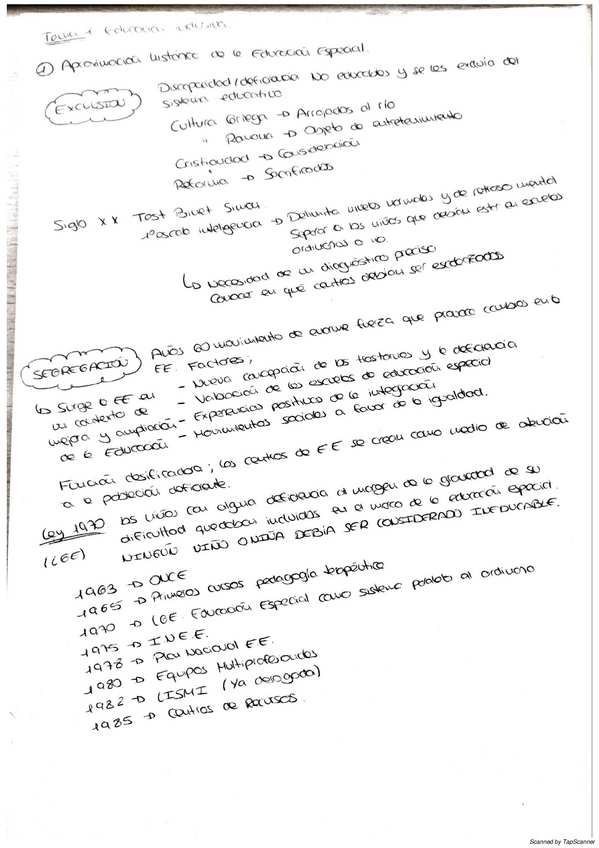 Tema 1 Educación inclusiva
① Aproximación histórica de la Educación Especial.
EXCLUSIÓN
Discapacidad/deficiencia No educables y se les excluía del
sistema educativo.
Cultura Griega → Arrojados al río
" Romana → Objeto de entretenimiento
Cristiandad → Consideración
Reforma → Sacrificados
Siglo XX Test Binet Simon.
1ª escala inteligencia → Delimita niveles normales y de retraso mental
Separar a los niños que debían estar en escuelas
ordinarias o no.
↳ Necesidad de un diagnóstico preciso
Conocer en qué centros debían ser escolarizados
SEGREGACIÓN
Años 60 movimiento de enorme fuerza que provoca cambios en la
EE. Factores;
↳ Surge la EE en
un contexto de
mejora y ampliación
de la Educación
- Nueva concepción de los trastornos y la deficiencia
- Valoración de las escuelas de educación especial
- Experiencias positivas de la integración
- Movimientos sociales a favor de la igualdad.
Función clasificadora; los centros de EE se crean como medio de atención
a la población deficiente.
Ley 1970
(LGE)
los niños con alguna deficiencia al margen de la gravedad de su
dificultad quedaban incluidos en el marco de la educación especial.
NINGÚN NIÑO O NIÑA DEBÍA SER CONSIDERADO INEDUCABLE.
1963 → ONCE
1965 → Primeros cursos pedagogía terapéutica
1970 → LGE. Educación Especial como sistema paralelo al ordinario
1975 → I.N.E.E.
1978 → Plan Nacional EE.
1980 → Equipos Multiprofesionales
1982 → LISMI (Ya derogada)
1985 → Centros de Recursos.
Scanned by TapScanner